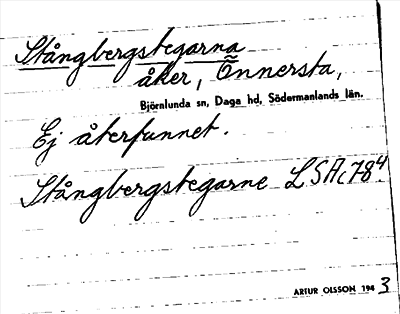 Stångbergstegarna
åker, Önnersta,
Björnlunda sn, Daga hd, Södermanlands län.
Ej återfunnet.
Stångbergstegarne LSA c78⁴.
ARTUR OLSSON 1943